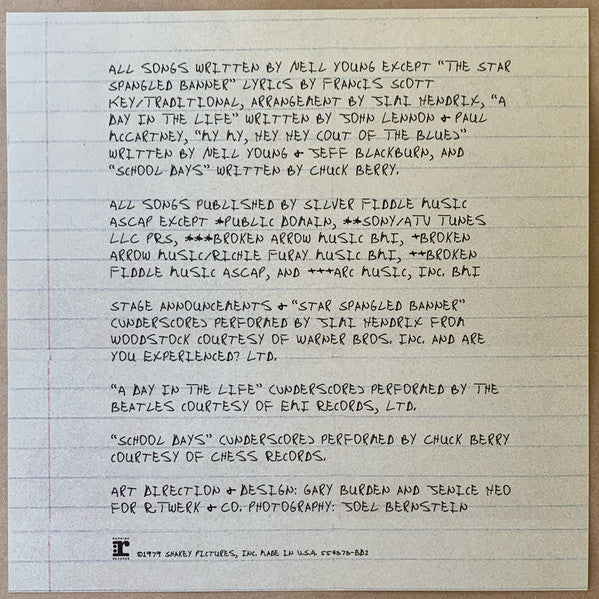 ALL SONGS WRITTEN BY NEIL YOUNG EXCEPT "THE STAR
SPANGLED BANNER" LYRICS BY FRANCIS SCOTT
KEY/TRADITIONAL, ARRANGEMENT BY JIMI HENDRIX, "A
DAY IN THE LIFE" WRITTEN BY JOHN LENNON & PAUL
MCCARTNEY, "MY MY, HEY HEY (OUT OF THE BLUE)"
WRITTEN BY NEIL YOUNG & JEFF BLACKBURN, AND
"SCHOOL DAYS" WRITTEN BY CHUCK BERRY.
ALL SONGS PUBLISHED BY SILVER FIDDLE MUSIC
ASCAP EXCEPT *PUBLIC DOMAIN, **SONY/ATV TUNES
LLC PRS, ***BROKEN ARROW MUSIC BMI, +BROKEN
ARROW MUSIC/RICHIE FURAY MUSIC BMI, ++BROKEN
FIDDLE MUSIC ASCAP, AND +++ARC MUSIC, INC. BMI
STAGE ANNOUNCEMENTS & "STAR SPANGLED BANNER"
(UNDERSCORE) PERFORMED BY JIMI HENDRIX FROM
WOODSTOCK COURTESY OF WARNER BROS. INC. AND ARE
YOU EXPERIENCED? LTD.
"A DAY IN THE LIFE" (UNDERSCORE) PERFORMED BY THE
BEATLES COURTESY OF EMI RECORDS, LTD.
"SCHOOL DAYS" (UNDERSCORE) PERFORMED BY CHUCK BERRY
COURTESY OF CHESS RECORDS.
ART DIRECTION & DESIGN: GARY BURDEN AND JENICE HEO
FOR R. TWERK & CO. PHOTOGRAPHY: JOEL BERNSTEIN
REPRISE
r
RECORDS
©1979 SHAKEY PICTURES, INC. MADE IN U.S.A.